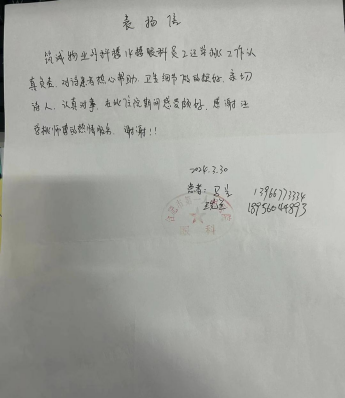 表扬信
筑成物业外科楼14楼眼科员工汪苦秋工作认
真负责,对待患者热心帮助,卫生细节做的很好,亲切
待人,认真对事,在我住院期间感受颇好,感谢汪
师傅的热情服务,谢谢!!
2024.3.30
患者:
13966773334
18956044893
眼科